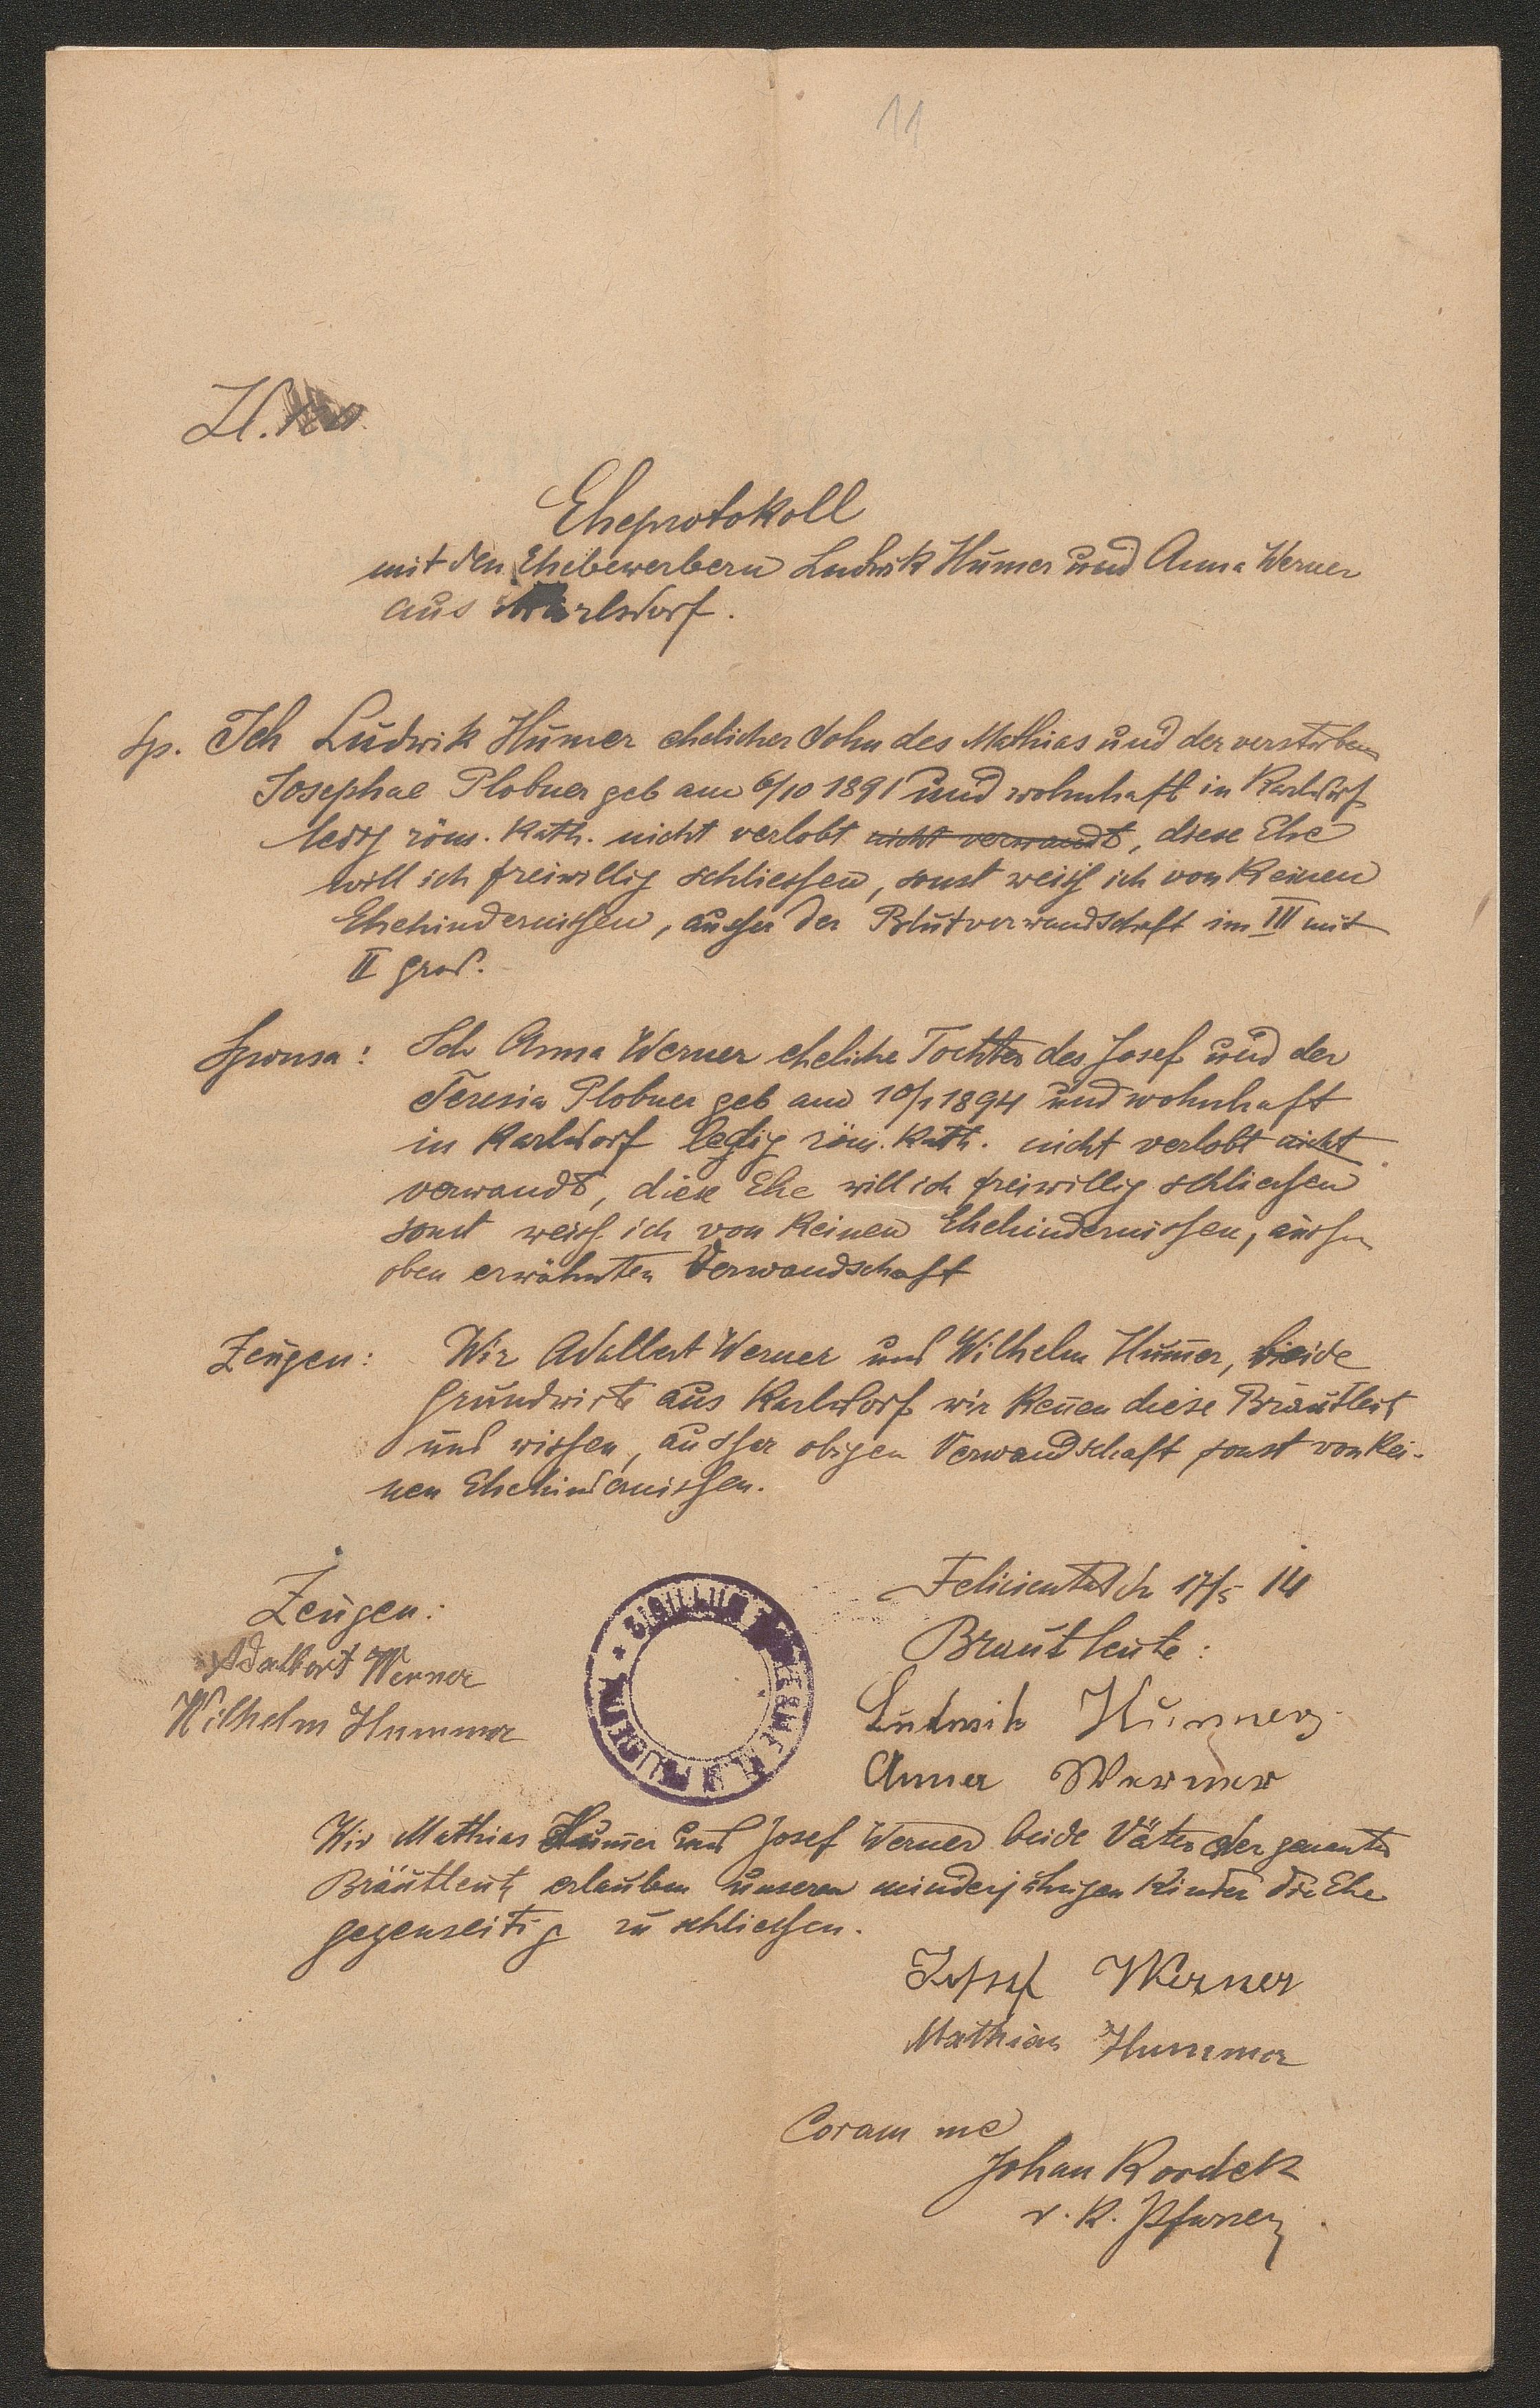 11
Zl.
Eheprotokoll
mit den Ehebewerbern Ludwik Humer und Anna Werner
aus Karlsdorf.
Sp. Ich Ludwik Humer ehelicher Sohn des Mathias und der verstorben
Josephae Plobner geb am 6/10 1891 und wohnhaft in Karlsdorf
ledig röm. Kath. nicht verlobt nicht verwandt, diese Ehe
will ich freiwillig schliessen, sonst weiss ich von Keinen
Ehehindernissen, ausser der Blutverwandschaft im III mit
II grad.
Sponsa: Ich Anna Werner eheliche Tochter des Josef und der
Teresia Plobner geb am 10/1 1894 und wohnhaft
in Karlsdorf ledig röm. Kath. nicht verlobt nicht
verwandt, diese Ehe will ich freiwillig schliessen
sonst weiss ich von Keinen Ehehindernissen, ausser
oben erwähnten Verwandschaft
Zeugen: Wir Adalbert Werner und Wilhelm Hum̄er, beide
Grundwirte aus Karlsdorf wir Ken̄en diese Bräutleut
und wissen, ausser obigen Verwandschaft sonst von Kei-
nen Ehehindernissen.
Zeugen:
Adalbert Werner
Wilhelm Hummer
Felicienthal den 17/5 14
Brautleute:
Ludwik Hummer
Anna Werner
Wir Mathias Hum̄er und Josef Werner beide Väter der genanten
Bräutleute erlauben unseren minderjährigen Kinder die Ehe
gegenseitig zu schliessen.
Josef Werner
Mathias Hummer
Coram me
Johan Kordek
r. K. Pfarrer